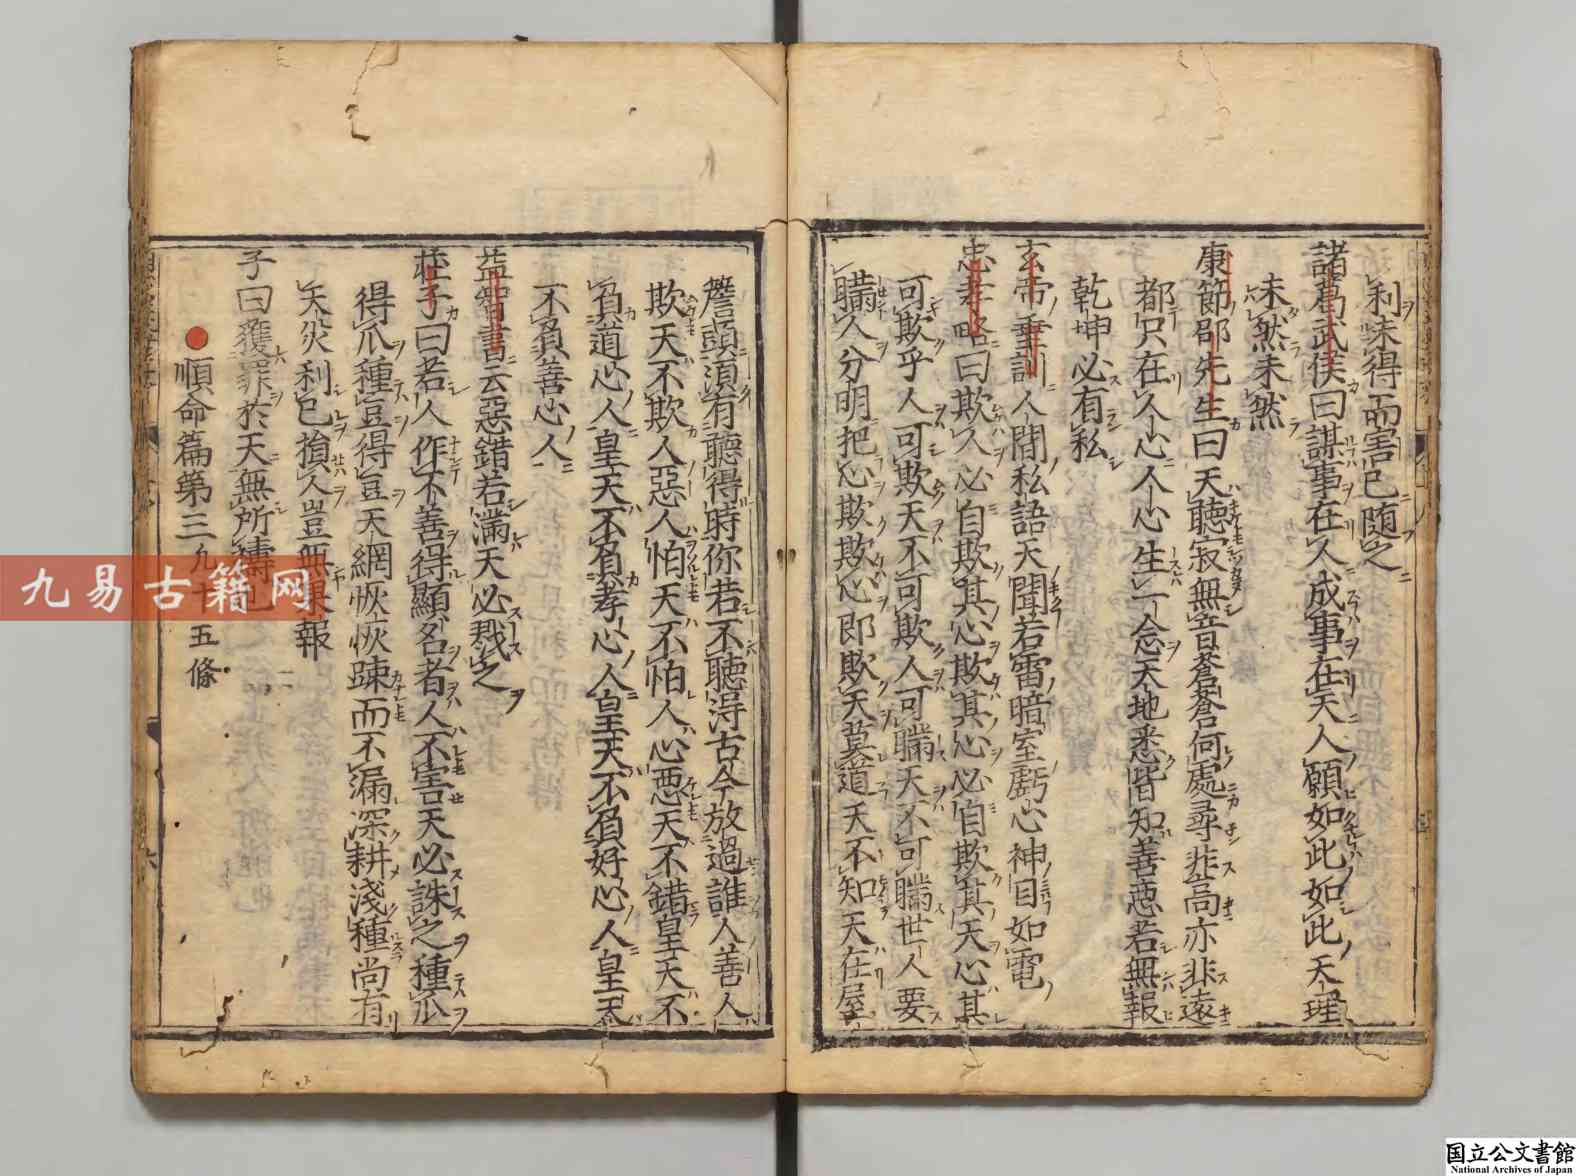 利昧得而害已隨之
諸葛武侯曰謀事在人成事在天人願如此如此天理
未然未然
康節邵先生曰天聽寂無音蒼蒼何處尋非高亦非遠
都只在人心人心生一念天地悉皆知善惡若無報
乾坤必有私
玄帝垂訓人間私語天聞若雷暗室虧心神目如電
忠孝略曰欺人必自欺其心欺其心必自欺其天心其
可欺乎人可欺天不可欺人可瞞天不可瞞世人要
瞞人分明把心欺欺心即欺天莫道天不知天在屋
簷頭須有聽得時你若不聽得古今放過誰人善人
欺天不欺人惡人怕天不怕人心惡天不錯皇天不
負道心人皇天不負孝心人皇天不負好心人皇天
不負善心人
益智書云惡錯若滿天必戮之
莊子曰若人作不善得顯名者人不害天必誅之種瓜
得瓜種豆得豆天網恢恢踈而不漏深耕淺種尚有
天災利己損人豈無果報
順命篇第三 九十五條
子曰獲罪於天無所禱也
九易古籍网
国立公文書館
National Archives of Japan